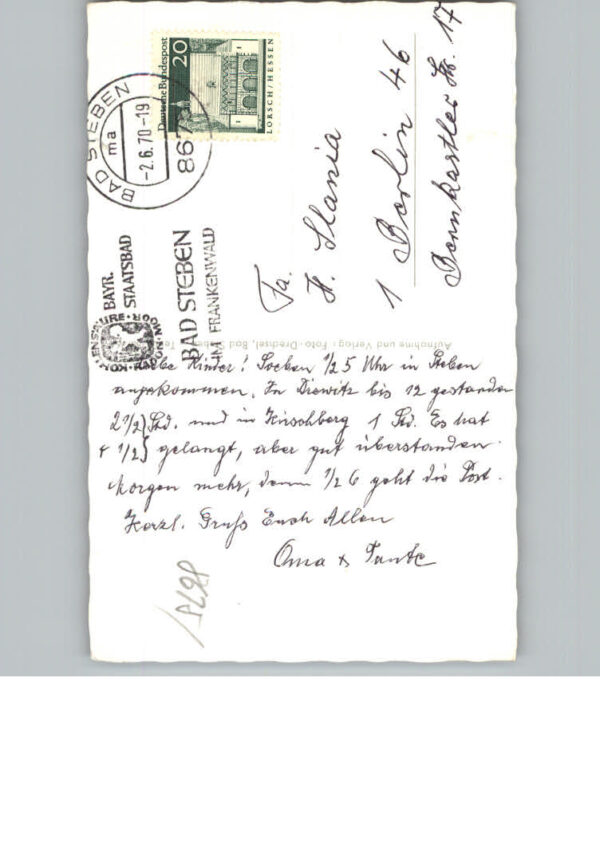 Deutsche Bundespost
20
LORSCH/HESSEN
BAD STEBEN
ma
-2.6.70-19
867
BAYR.
STAATSBAD
BAD STEBEN
IM FRANKENWALD
KOHLENSÄURE · RADON · MOOR
Fa.
H. Slania
1 Berlin 46
Bernkastler Str. 17
Aufnahme und Verlag: Foto-Drechsel, Bad
Liebe Kinder! Soeben 1/2 5 Uhr in Steben
angekommen. In Drewitz bis 12 gestanden
2 1/2 Std. und in Hirschberg 1 Std. Es hat
+ 1/2 gelangt, aber gut überstanden.
Morgen mehr, denn 1/2 6 geht die Post.
Herzl. Gruß Euch Allen
Oma & Tante